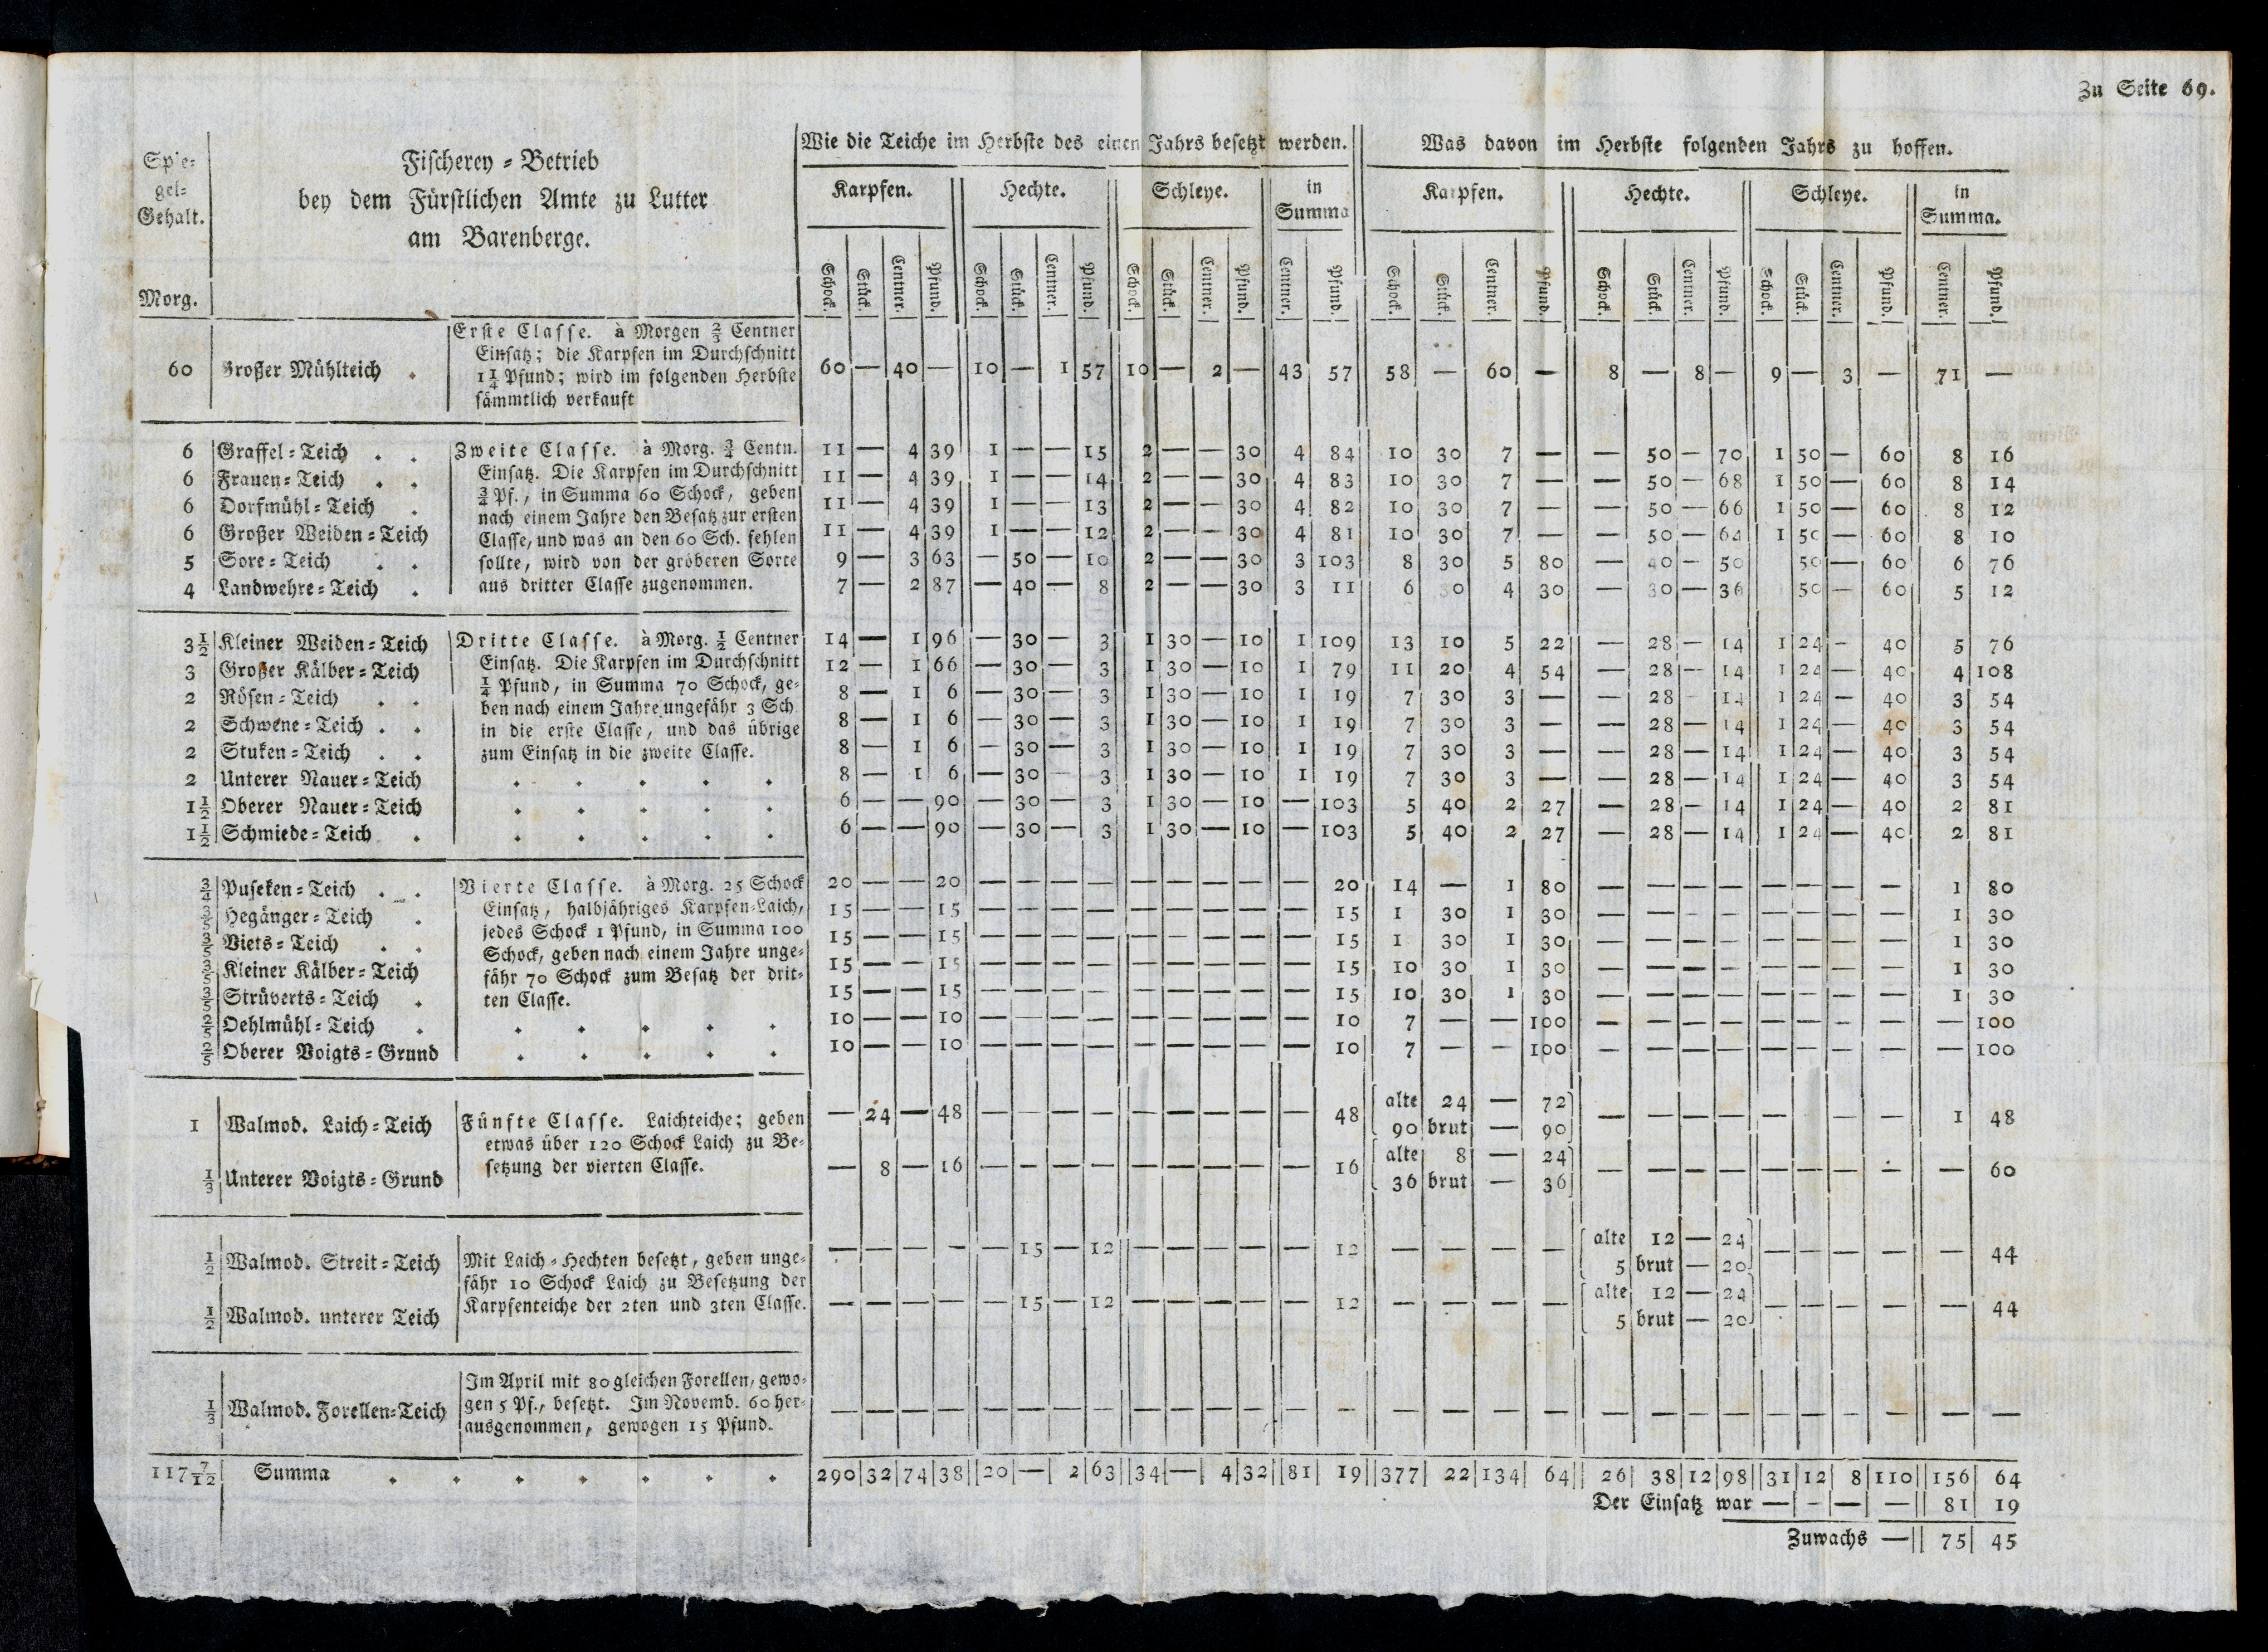 Zu Seite 69.
Spie-
gel-
Gehalt.
Morg.
Fischerey-Betrieb
bey dem Fürstlichen Amte zu Lutter
am Barenberge.
Wie die Teiche im Herbste des einen Jahrs besetzt werden. Was davon im Herbste folgenden Jahrs zu hoffen.
Karpfen. Hechte. Schleye. in Summa Karpfen. Hechte. Schleye. in Summa.
Schock. Stück. Centner. Pfund. Schock. Stück. Centner. Pfund. Schock. Stück. Centner. Pfund. Centner. Pfund. Schock. Stück. Centner. Pfund. Schock. Stück. Centner. Pfund. Schock. Stück. Centner. Pfund. Centner. Pfund.
Erste Classe. à Morgen 2/3 Centner
Einsatz; die Karpfen im Durchschnitt
1 1/4 Pfund; wird im folgenden Herbste
sämmtlich verkauft
60 Großer Mühlteich . 60 — 40 — 10 — 1 57 10 — 2 — 43 57 58 — 60 — 8 — 8 — 9 — 3 — 71 —
Zweite Classe. à Morg. 3/4 Centn.
Einsatz. Die Karpfen im Durchschnitt
3/4 Pf., in Summa 60 Schock, geben
nach einem Jahre den Besatz zur ersten
Classe, und was an den 60 Sch. fehlen
sollte, wird von der gröberen Sorte
aus dritter Classe zugenommen.
6 Graffel-Teich . . 11 — 4 39 1 — — 15 2 — — 30 4 84 10 30 7 — — 50 — 70 1 50 — 60 8 16
6 Frauen-Teich . . 11 — 4 39 1 — — 14 2 — — 30 4 83 10 30 7 — — 50 — 68 1 50 — 60 8 14
6 Dorfmühl-Teich . 11 — 4 39 1 — — 13 2 — — 30 4 82 10 30 7 — — 50 — 66 1 50 — 60 8 12
6 Großer Weiden-Teich 11 — 4 39 1 — — 12 2 — — 30 4 81 10 30 7 — — 50 — 64 1 50 — 60 8 10
5 Sore-Teich . . 9 — 3 63 — 50 — 10 2 — — 30 3 103 8 30 5 80 — 40 — 50 50 — 60 6 76
4 Landwehre-Teich . 7 — 2 87 — 40 — 8 2 — — 30 3 11 6 30 4 30 — 30 — 36 50 — 60 5 12
Dritte Classe. à Morg. 1/2 Centner
Einsatz. Die Karpfen im Durchschnitt
1/4 Pfund, in Summa 70 Schock, ge-
ben nach einem Jahre ungefähr 3 Sch.
in die erste Classe, und das übrige
zum Einsatz in die zweite Classe.
3 1/2 Kleiner Weiden-Teich 14 — 1 96 — 30 — 3 1 30 — 10 1 109 13 10 5 22 — 28 — 14 1 24 — 40 5 76
3 Großer Kälber-Teich 12 — 1 66 — 30 — 3 1 30 — 10 1 79 11 20 4 54 — 28 — 14 1 24 — 40 4 108
2 Rösen-Teich . . 8 — 1 6 — 30 — 3 1 30 — 10 1 19 7 30 3 — — 28 — 14 1 24 — 40 3 54
2 Schwene-Teich . . 8 — 1 6 — 30 — 3 1 30 — 10 1 19 7 30 3 — — 28 — 14 1 24 — 40 3 54
2 Stuken-Teich . . 8 — 1 6 — 30 — 3 1 30 — 10 1 19 7 30 3 — — 28 — 14 1 24 — 40 3 54
2 Unterer Nauer-Teich . . . . . 8 — 1 6 — 30 — 3 1 30 — 10 1 19 7 30 3 — — 28 — 14 1 24 — 40 3 54
1 1/2 Oberer Nauer-Teich . . . . . 6 — — 90 — 30 — 3 1 30 — 10 — 103 5 40 2 27 — 28 — 14 1 24 — 40 2 81
1 1/2 Schmiede-Teich . . . . . . 6 — — 90 — 30 — 3 1 30 — 10 — 103 5 40 2 27 — 28 — 14 1 24 — 40 2 81
Vierte Classe. à Morg. 25 Schock
Einsatz, halbjähriges Karpfen-Laich,
jedes Schock 1 Pfund, in Summa 100
Schock, geben nach einem Jahre unge-
fähr 70 Schock zum Besatz der drit-
ten Classe.
3/4 Puseken-Teich . . 20 — — 20 — — — — — — — — — 20 14 — 1 80 — — — — — — — — 1 80
3/5 Hegänger-Teich . 15 — — 15 — — — — — — — — — 15 1 30 1 30 — — — — — — — — 1 30
3/5 Viets-Teich . . 15 — — 15 — — — — — — — — — 15 1 30 1 30 — — — — — — — — 1 30
3/5 Kleiner Kälber-Teich 15 — — 15 — — — — — — — — — 15 10 30 1 30 — — — — — — — — 1 30
3/5 Strüverts-Teich . 15 — — 15 — — — — — — — — — 15 10 30 1 30 — — — — — — — — 1 30
2/5 Oehlmühl-Teich . . . . . . 10 — — 10 — — — — — — — — — 10 7 — — 100 — — — — — — — — — 100
2/5 Oberer Voigts-Grund . . . . . 10 — — 10 — — — — — — — — — 10 7 — — 100 — — — — — — — — — 100
Fünfte Classe. Laichteiche; geben
etwas über 120 Schock Laich zu Be-
setzung der vierten Classe.
1 Walmod. Laich-Teich — 24 — 48 — — — — — — — — — 48 alte 24 — 72 — — — — — — — — 1 48
90 brut — 90
1/3 Unterer Voigts-Grund — 8 — 16 — — — — — — — — — 16 alte 8 — 24 — — — — — — — — — 60
36 brut — 36
Mit Laich-Hechten besetzt, geben unge-
fähr 10 Schock Laich zu Besetzung der
Karpfenteiche der 2ten und 3ten Classe.
1/2 Walmod. Streit-Teich — — — — — 15 — 12 — — — — — 12 — — — — alte 12 — 24 — — — — — 44
5 brut — 20
1/2 Walmod. unterer Teich — — — — — 15 — 12 — — — — — 12 — — — — alte 12 — 24 — — — — — 44
5 brut — 20
Im April mit 80 gleichen Forellen, gewo-
gen 5 Pf., besetzt. Im Novemb. 60 her-
ausgenommen, gewogen 15 Pfund.
1/3 Walmod. Forellen-Teich — — — — — — — — — — — — — — — — — — — — — — — — — — — —
117 7/12 Summa . . . . . . . 290 32 74 38 20 — 2 63 34 — 4 32 81 19 377 22 134 64 26 38 12 98 31 12 8 110 156 64
Der Einsatz war — — — — 81 19
Zuwachs — 75 45